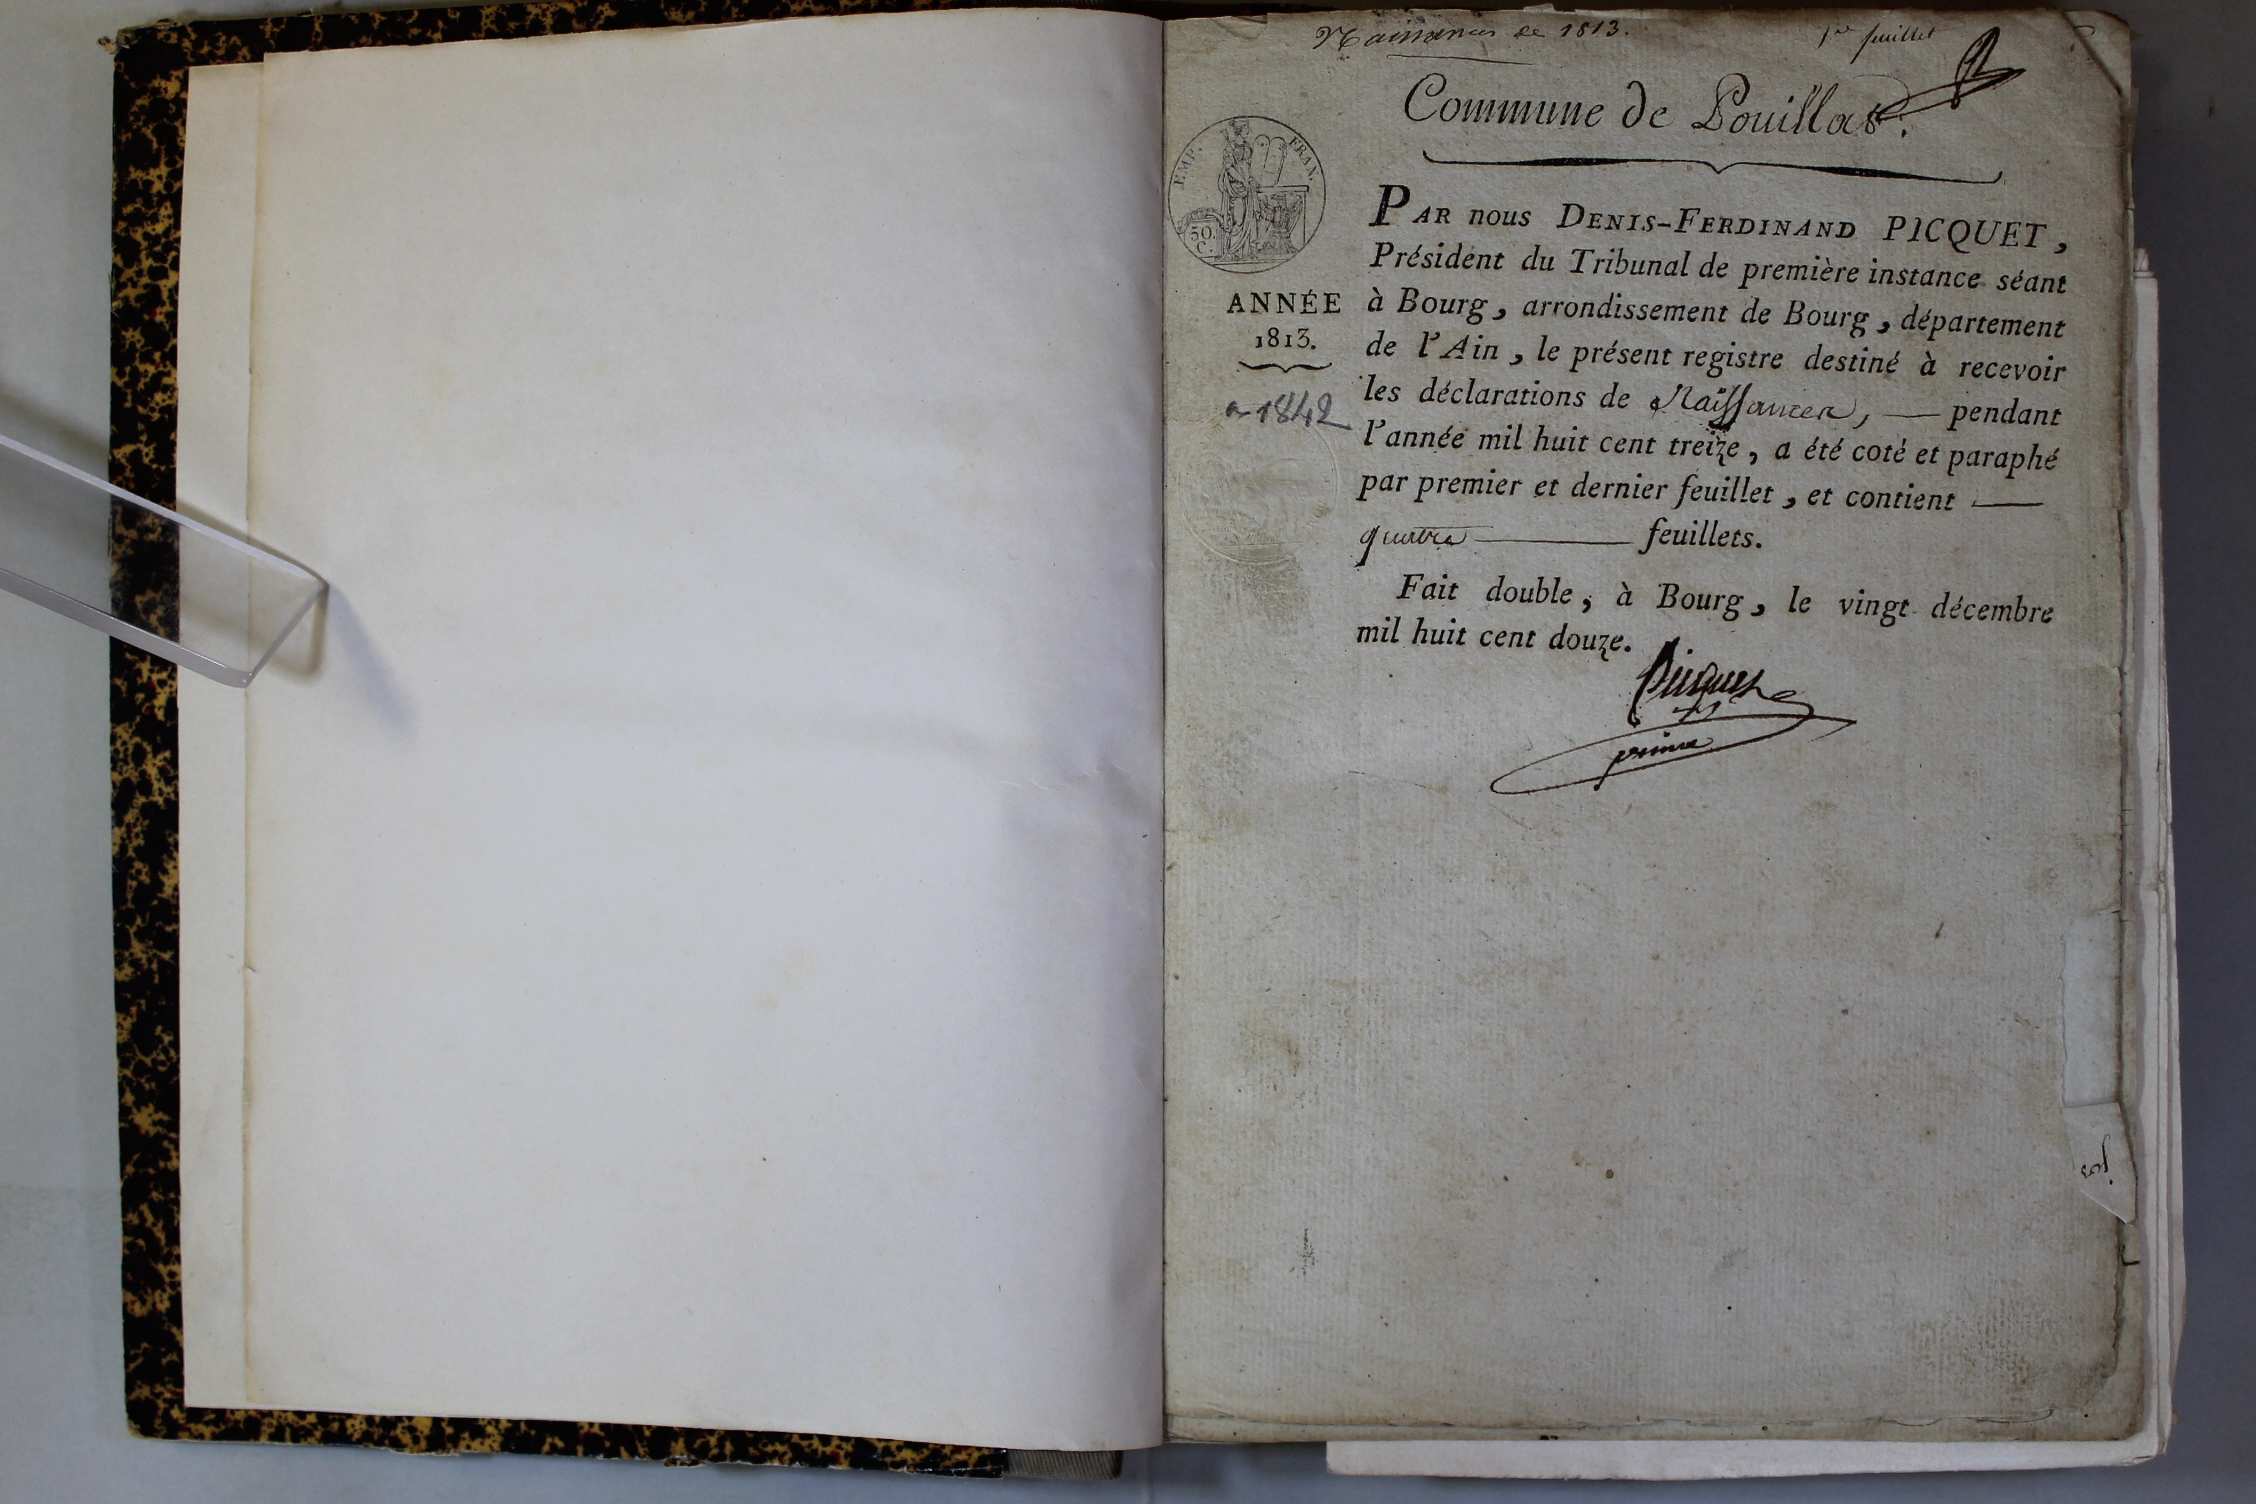 Naissances de 1813.
1er feuillet
Commune de Pouillat.
EMP. FRAN.
50.
C.
ANNÉE
1813.
a 1842
PAR nous DENIS-FERDINAND PICQUET,
Président du Tribunal de première instance séant
à Bourg, arrondissement de Bourg, département
de l'Ain, le présent registre destiné à recevoir
les déclarations de Naissances, — pendant
l'année mil huit cent treize, a été coté et paraphé
par premier et dernier feuillet, et contient —
quatre — feuillets.
Fait double, à Bourg, le vingt décembre
mil huit cent douze.
Picquet